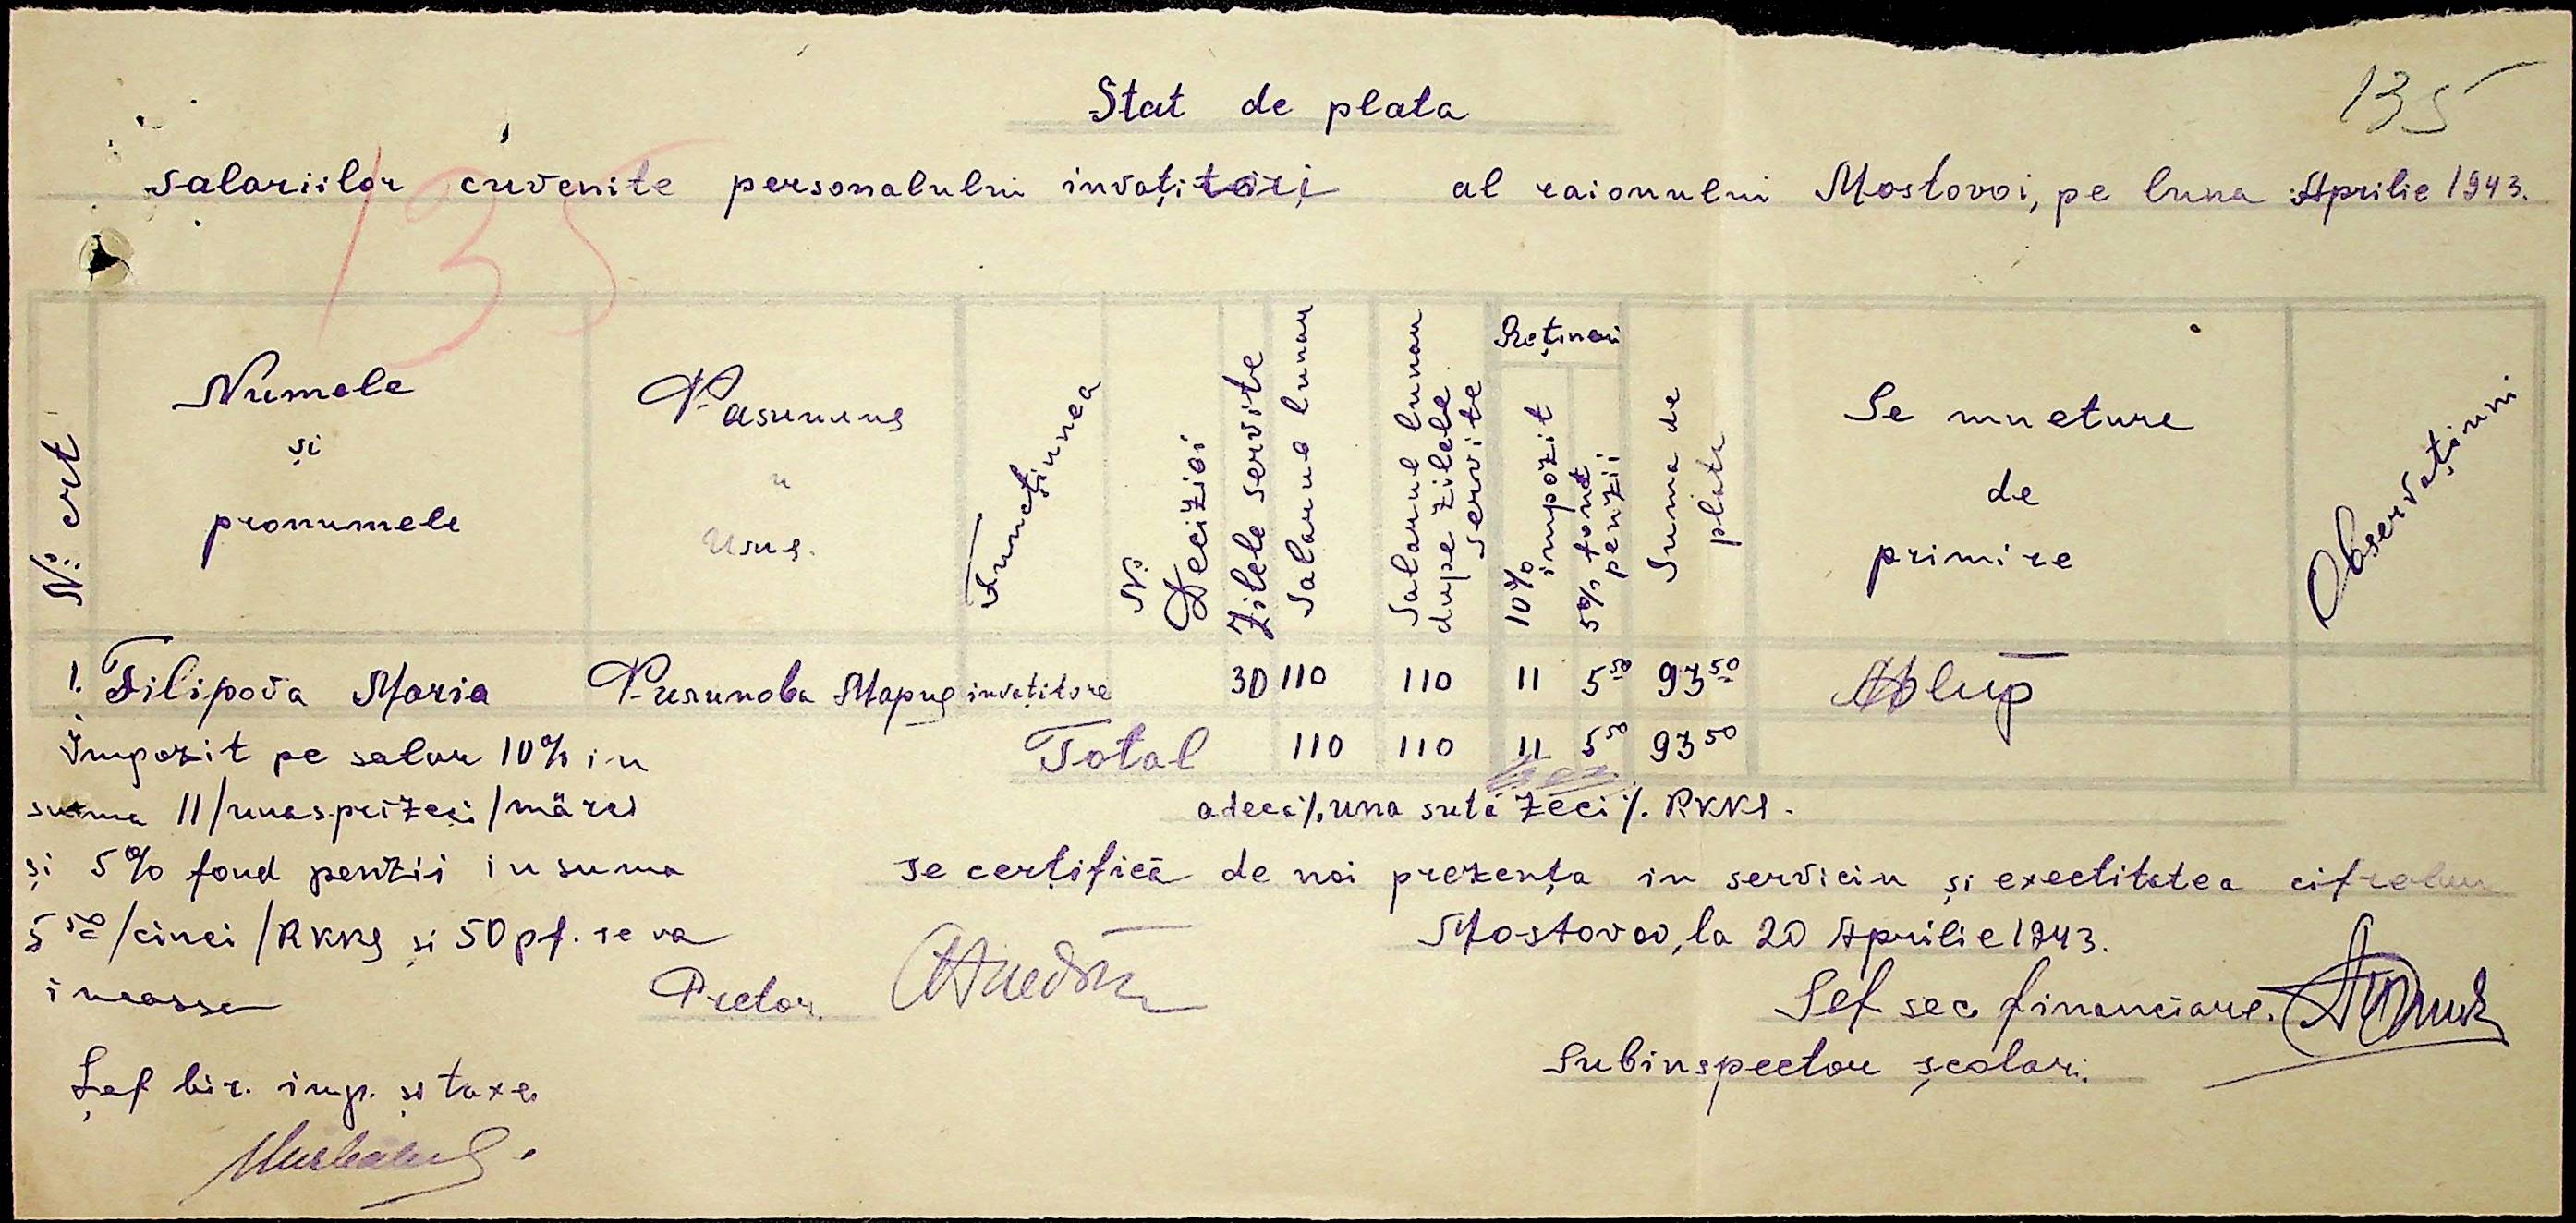 135
Stat de plata
salariilor cuvenite personalului invațitori al raionului Mostovoi, pe luna Aprilie 1943.
135
№ crt
Numele
și
pronumele
Фамилия
и
Имя.
Funcținnea
№ Deciziei
Zilele servite
Salarul lunar
Salarul lunar dupe zilele servite
Rețineri
10% impozit
5% fond penzii
Suma de plate
Se mneture
de
primire
Observațiuni
1. Filipova Maria Филипова Мария invațitore 30 110 110 11 5 50 93 50
Total 110 110 11 5 50 93 50
Impozit pe salar 10% in
suma 11/unasprizeci/märci
și 5% fond penzii in suma
5 50/cinci/RKKS și 50 pf. se va
incassa
adecă/.una sută zeci/. RKKS.
se certifică de noi prezența in serviciu și exectitatea cifrelor
Mostovoi, la 20 Aprilie 1943.
Pretor.
Șef sec financiare.
Subinspector școlar.
Șef bir. imp. și taxe